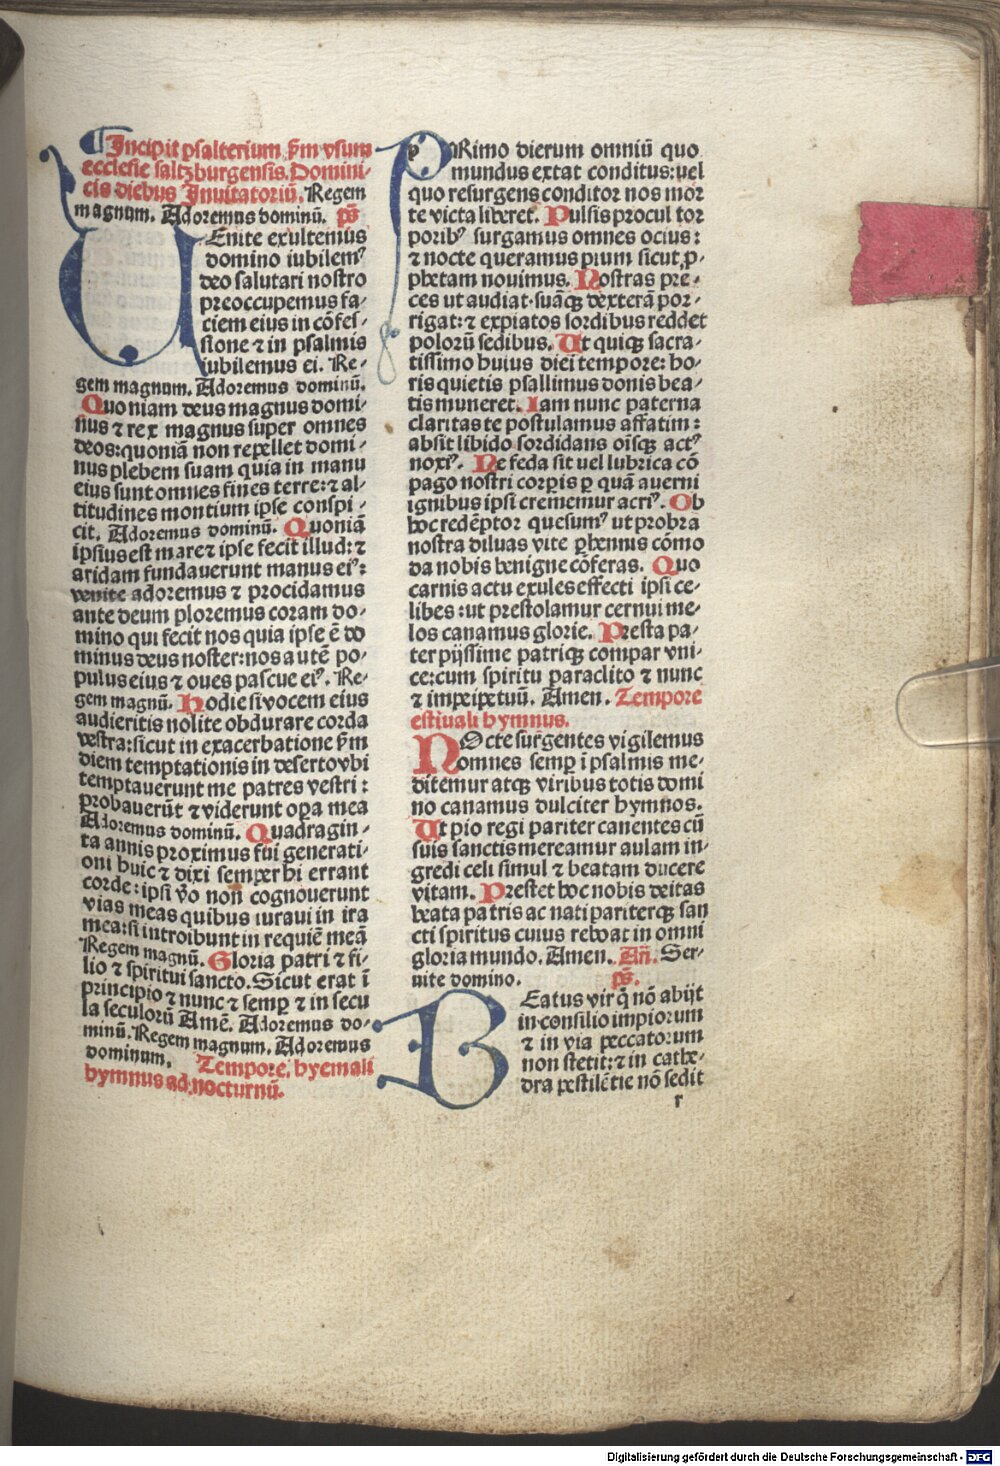 Incipit psalterium scꝺm vsum
ecclesie saltzburgensis. Domini-
cis diebus Inuitatoriū. Regem
magnum. Adoremus dominū. ps̄
UEnite exultemus
domino iubilemꝰ
deo salutari nostro
preoccupemus fa-
ciem eius in cōfes-
sione ⁊ in psalmis
iubilemus ei. Re-
gem magnum. Adoremus dominū.
Quoniam deus magnus domi-
nus ⁊ rex magnus super omnes
deos: quoniā non repellet domi-
nus plebem suam quia in manu
eius sunt omnes fines terre: ⁊ al-
titudines montium ipse conspi-
cit. Adoremus dominū. Quoniā
ipsius est mare ⁊ ipse fecit illud: ⁊
aridam fundauerunt manus eiꝰ:
venite adoremus ⁊ procidamus
ante deum ploremus coram do-
mino qui fecit nos quia ipse ē do
minus deus noster: nos autē po-
pulus eius ⁊ oues pascue eiꝰ. Re-
gem magnū. Hodie si vocem eius
audieritis nolite obdurare corda
vestra: sicut in exacerbatione scꝺm
diem temptationis in deserto vbi
temptauerunt me patres vestri:
probauerūt ⁊ viderunt opa mea
Adoremus dominū. Quadragin-
ta annis proximus fui generati-
oni huic ⁊ dixi semper hi errant
corde: ipsi v̄o non cognouerunt
vias meas quibus iuraui in ira
mea: si introibunt in requiē meā
Regem magnū. Gloria patri ⁊ fi-
lio ⁊ spiritui sancto. Sicut erat ī
principio ⁊ nunc ⁊ semꝑ ⁊ in secu
la seculorū Amē. Adoremus do-
minū. Regem magnum. Adoremus
dominum. Tempore hyemali
hymnus ad nocturnū.
PRimo dierum omniū quo
mundus extat conditus: vel
quo resurgens conditor nos mor
te victa liberet. Pulsis procul tor
poribꝰ surgamus omnes ocius:
⁊ nocte queramus pium sicut ꝓ-
phetam nouimus. Nostras pre-
ces ut audiat suāqꝫ dexterā por-
rigat: ⁊ expiatos sordibus reddet
polorū sedibus. Ut quiqꝫ sacra-
tissimo huius diei tempore: ho-
ris quietis psallimus donis bea-
tis muneret. Iam nunc paterna
claritas te postulamus affatim:
absit libido sordidans oīsqꝫ actꝰ
noxiꝰ. Ne feda sit uel lubrica cō
pago nostri corꝑis ꝑ quā auerni
ignibus ipsi crememur acriꝰ. Ob
hoc redēptor quesumꝰ ut probra
nostra diluas vite ꝑhennis cōmo
da nobis benigne cōferas. Quo
carnis actu exules effecti ipsi ce-
libes: ut prestolamur cernui me-
los canamus glorie. Presta pa-
ter pijssime patriqꝫ compar vni-
ce: cum spiritu paraclito ⁊ nunc
⁊ imperpetuū. Amen. Tempore
estiuali hymnus.
NOcte surgentes vigilemus
omnes semꝑ ī psalmis me-
ditemur atqꝫ viribus totis domi
no canamus dulciter hymnos.
Ut pio regi pariter canentes cū
suis sanctis mereamur aulam in-
gredi celi simul ⁊ beatam ducere
vitam. Prestet hoc nobis deitas
beata patris ac nati pariterqꝫ san
cti spiritus cuius reboat in omni
gloria mundo. Amen. An̄. Ser-
uite domino. ps̄.
BEatus vir q̄ nō abijt
in consilio impiorum
⁊ in via peccatorum
non stetit: ⁊ in cathe-
dra pestilētie nō sedit
r
Digitalisierung gefördert durch die Deutsche Forschungsgemeinschaft - DFG